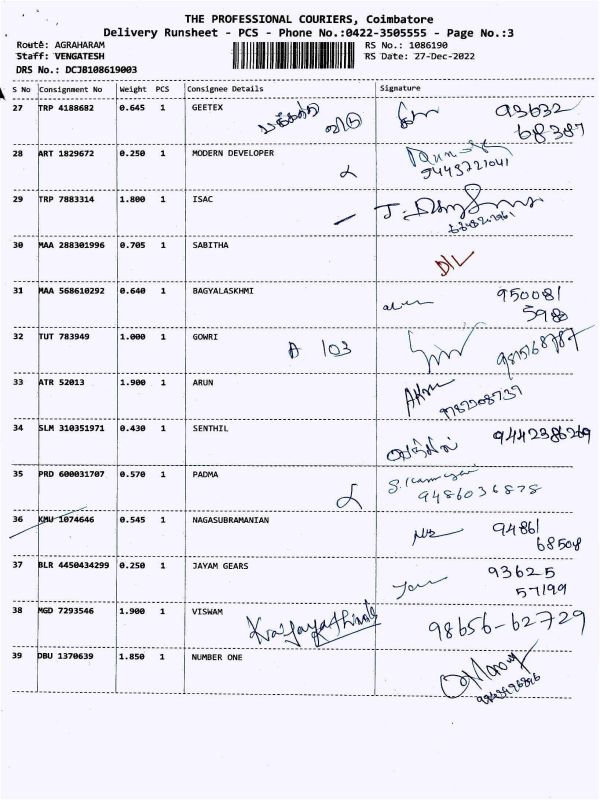 THE PROFESSIONAL COURIERS, Coimbatore
Delivery Runsheet - PCS - Phone No.:0422-3505555 - Page No.:3
Route: AGRAHARAM RS No.: 1086190
Staff: VENGATESH RS Date: 27-Dec-2022
DRS No.: DCJB108619003
S No Consignment No Weight PCS Consignee Details Signature
27 TRP 4188682 0.645 1 GEETEX 93632
68387
28 ART 1829672 0.250 1 MODERN DEVELOPER
9443721041
29 TRP 7883314 1.800 1 ISAC
30 MAA 288301996 0.705 1 SABITHA D/L
31 MAA 568610292 0.640 1 BAGYALASKHMI 950081
32 TUT 783949 1.000 1 GOWRI A 103
33 ATR 52013 1.900 1 ARUN
34 SLM 310351971 0.430 1 SENTHIL 9442386269
35 PRD 600031707 0.570 1 PADMA
9486036878
36 KMU 1074646 0.545 1 NAGASUBRAMANIAN 94861
68508
37 BLR 4450434299 0.250 1 JAYAM GEARS 93625
57199
38 MGD 7293546 1.900 1 VISWAM 98656-62729
39 DBU 1370639 1.850 1 NUMBER ONE